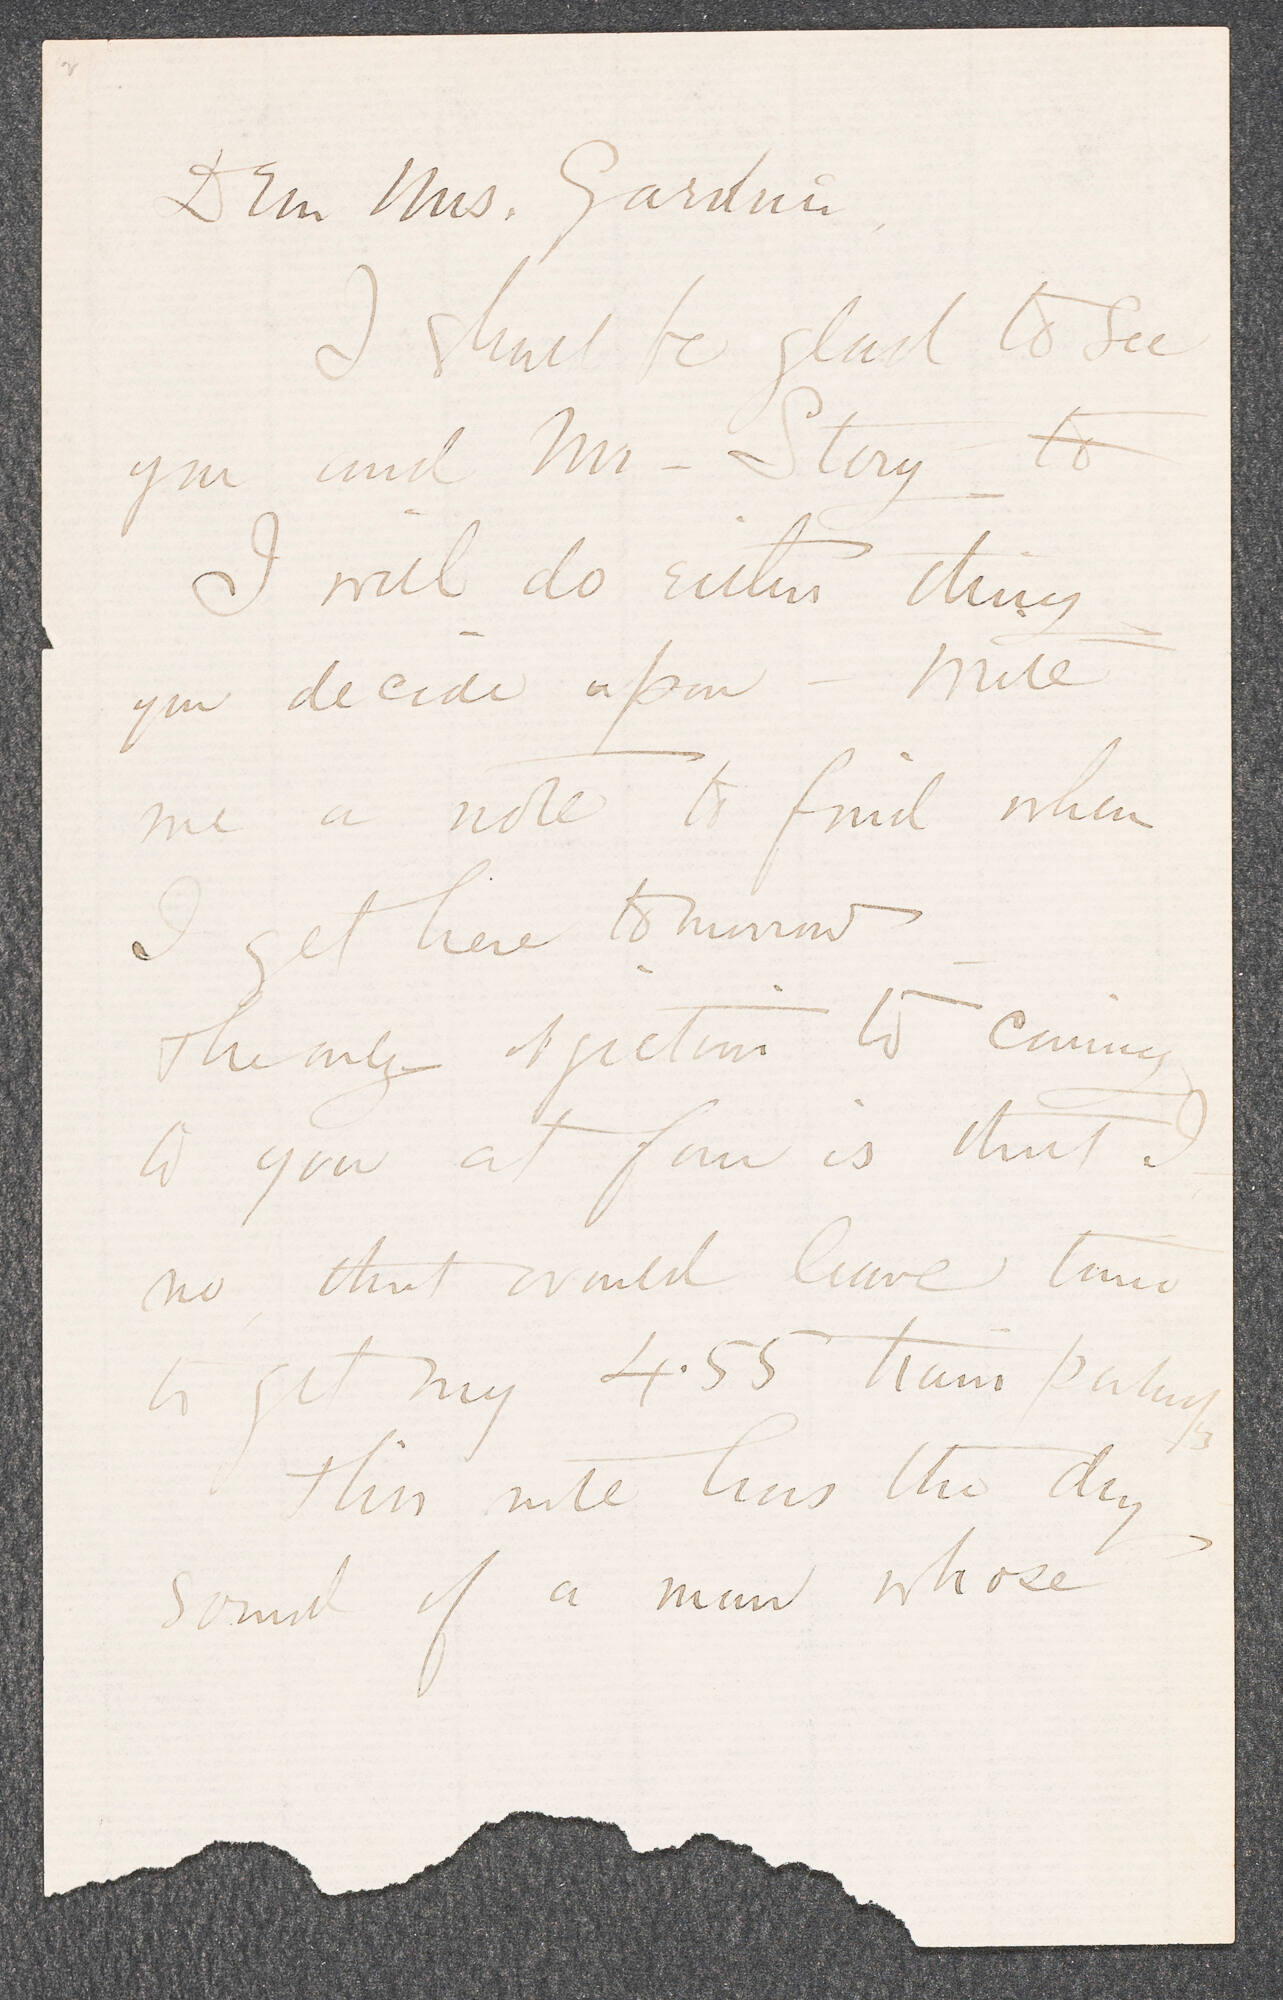 Dear Mrs. Gardner,
I shall be glad to see
you and Mr - Story to
I will do either thing
you decide upon - write
me a note to find when
I get here tomorrow -
The only objection to coming
to you at four is that I
no, that would leave time
to get my 4.55 train perhaps
This note has the dry
sound of a man whose